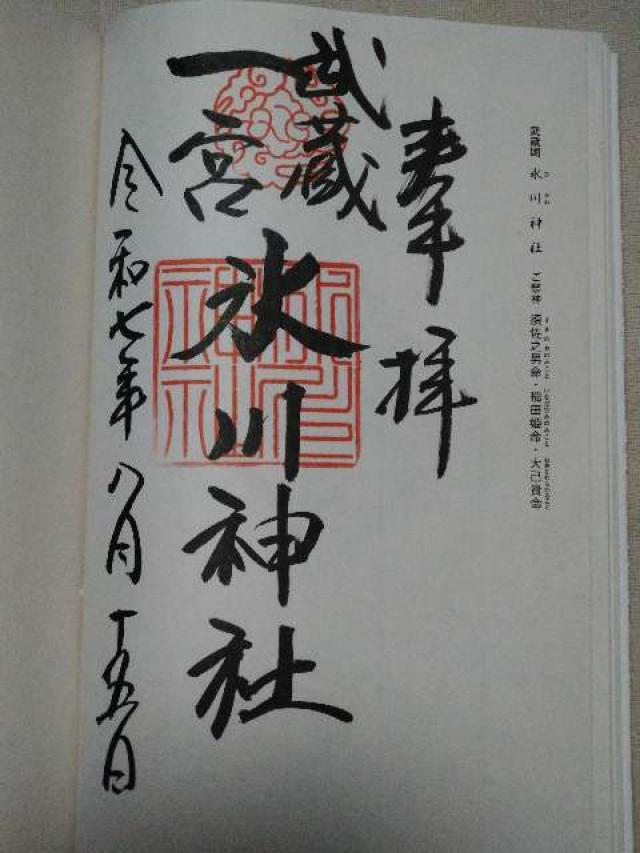 武蔵国 氷川神社 ご祭神 須佐之男命・稲田姫命・大己貴命
奉拝
武蔵
一宮
氷川神社
令和七年八月十五日